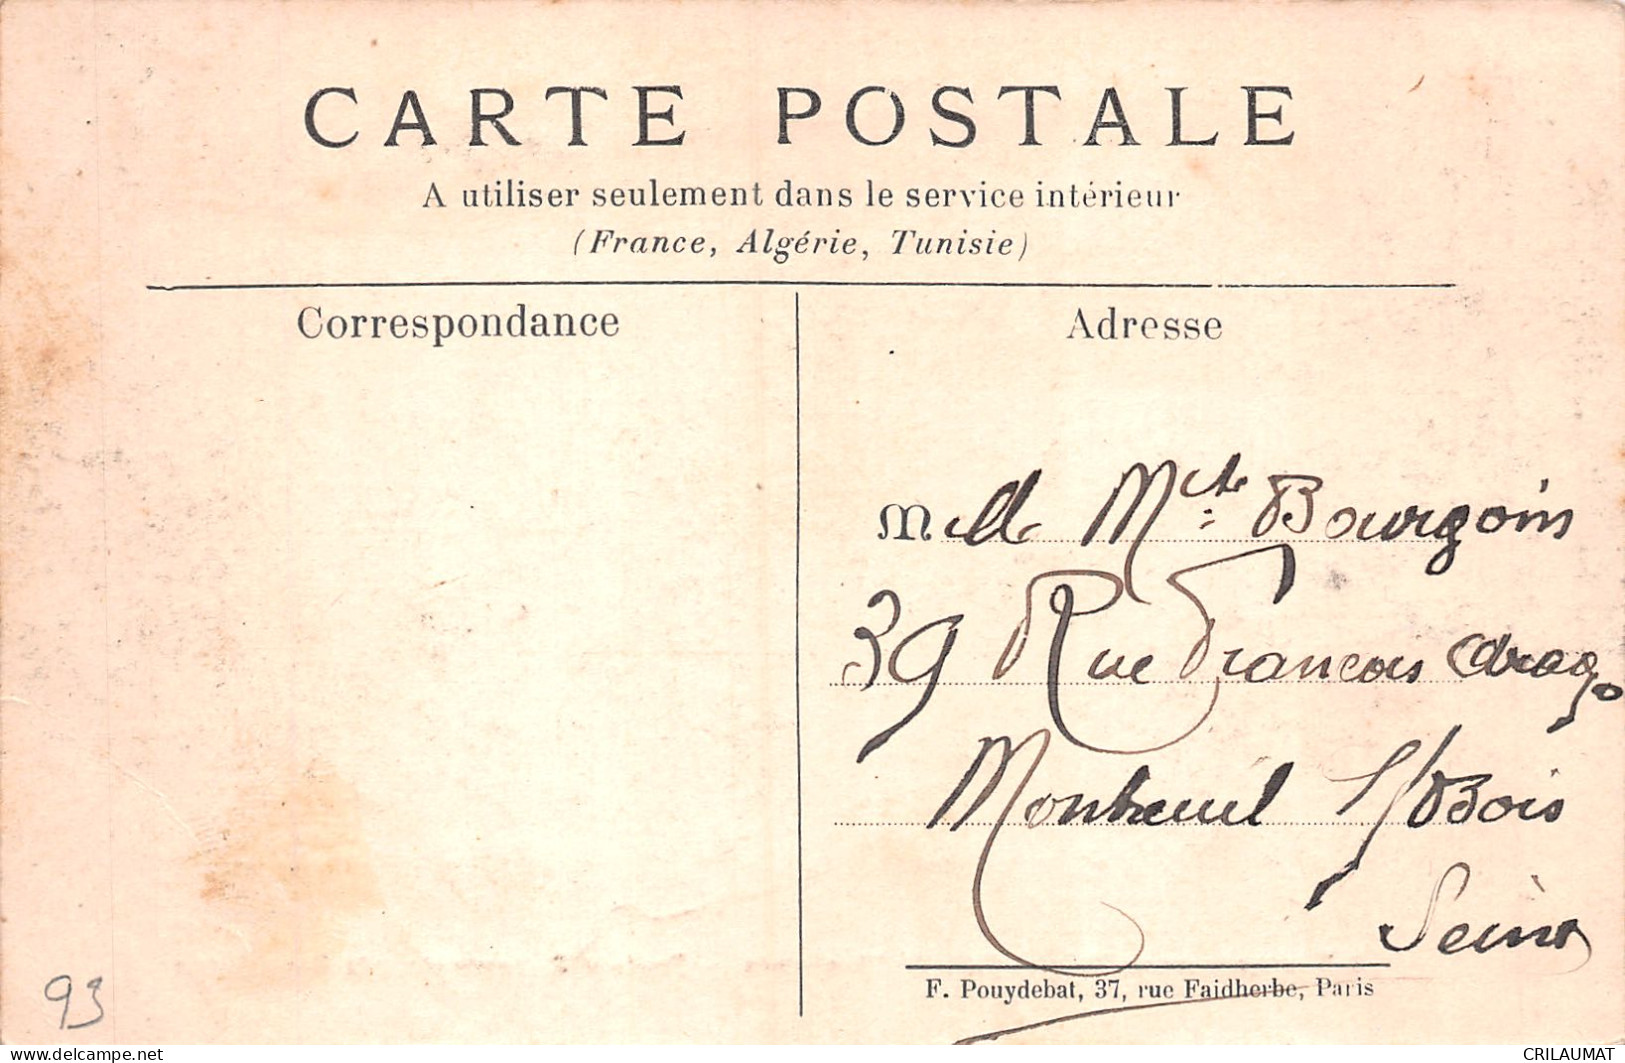 CARTE POSTALE
A utiliser seulement dans le service intérieur
(France, Algérie, Tunisie)
Correspondance
Adresse
Melle Mcte Bourgoin
39 Rue Francois Arago
Montreuil s/Bois
Seine
93
F. Pouydebat, 37, rue Faidherbe, Paris
https://www.delcampe.net
CRILAUMAT